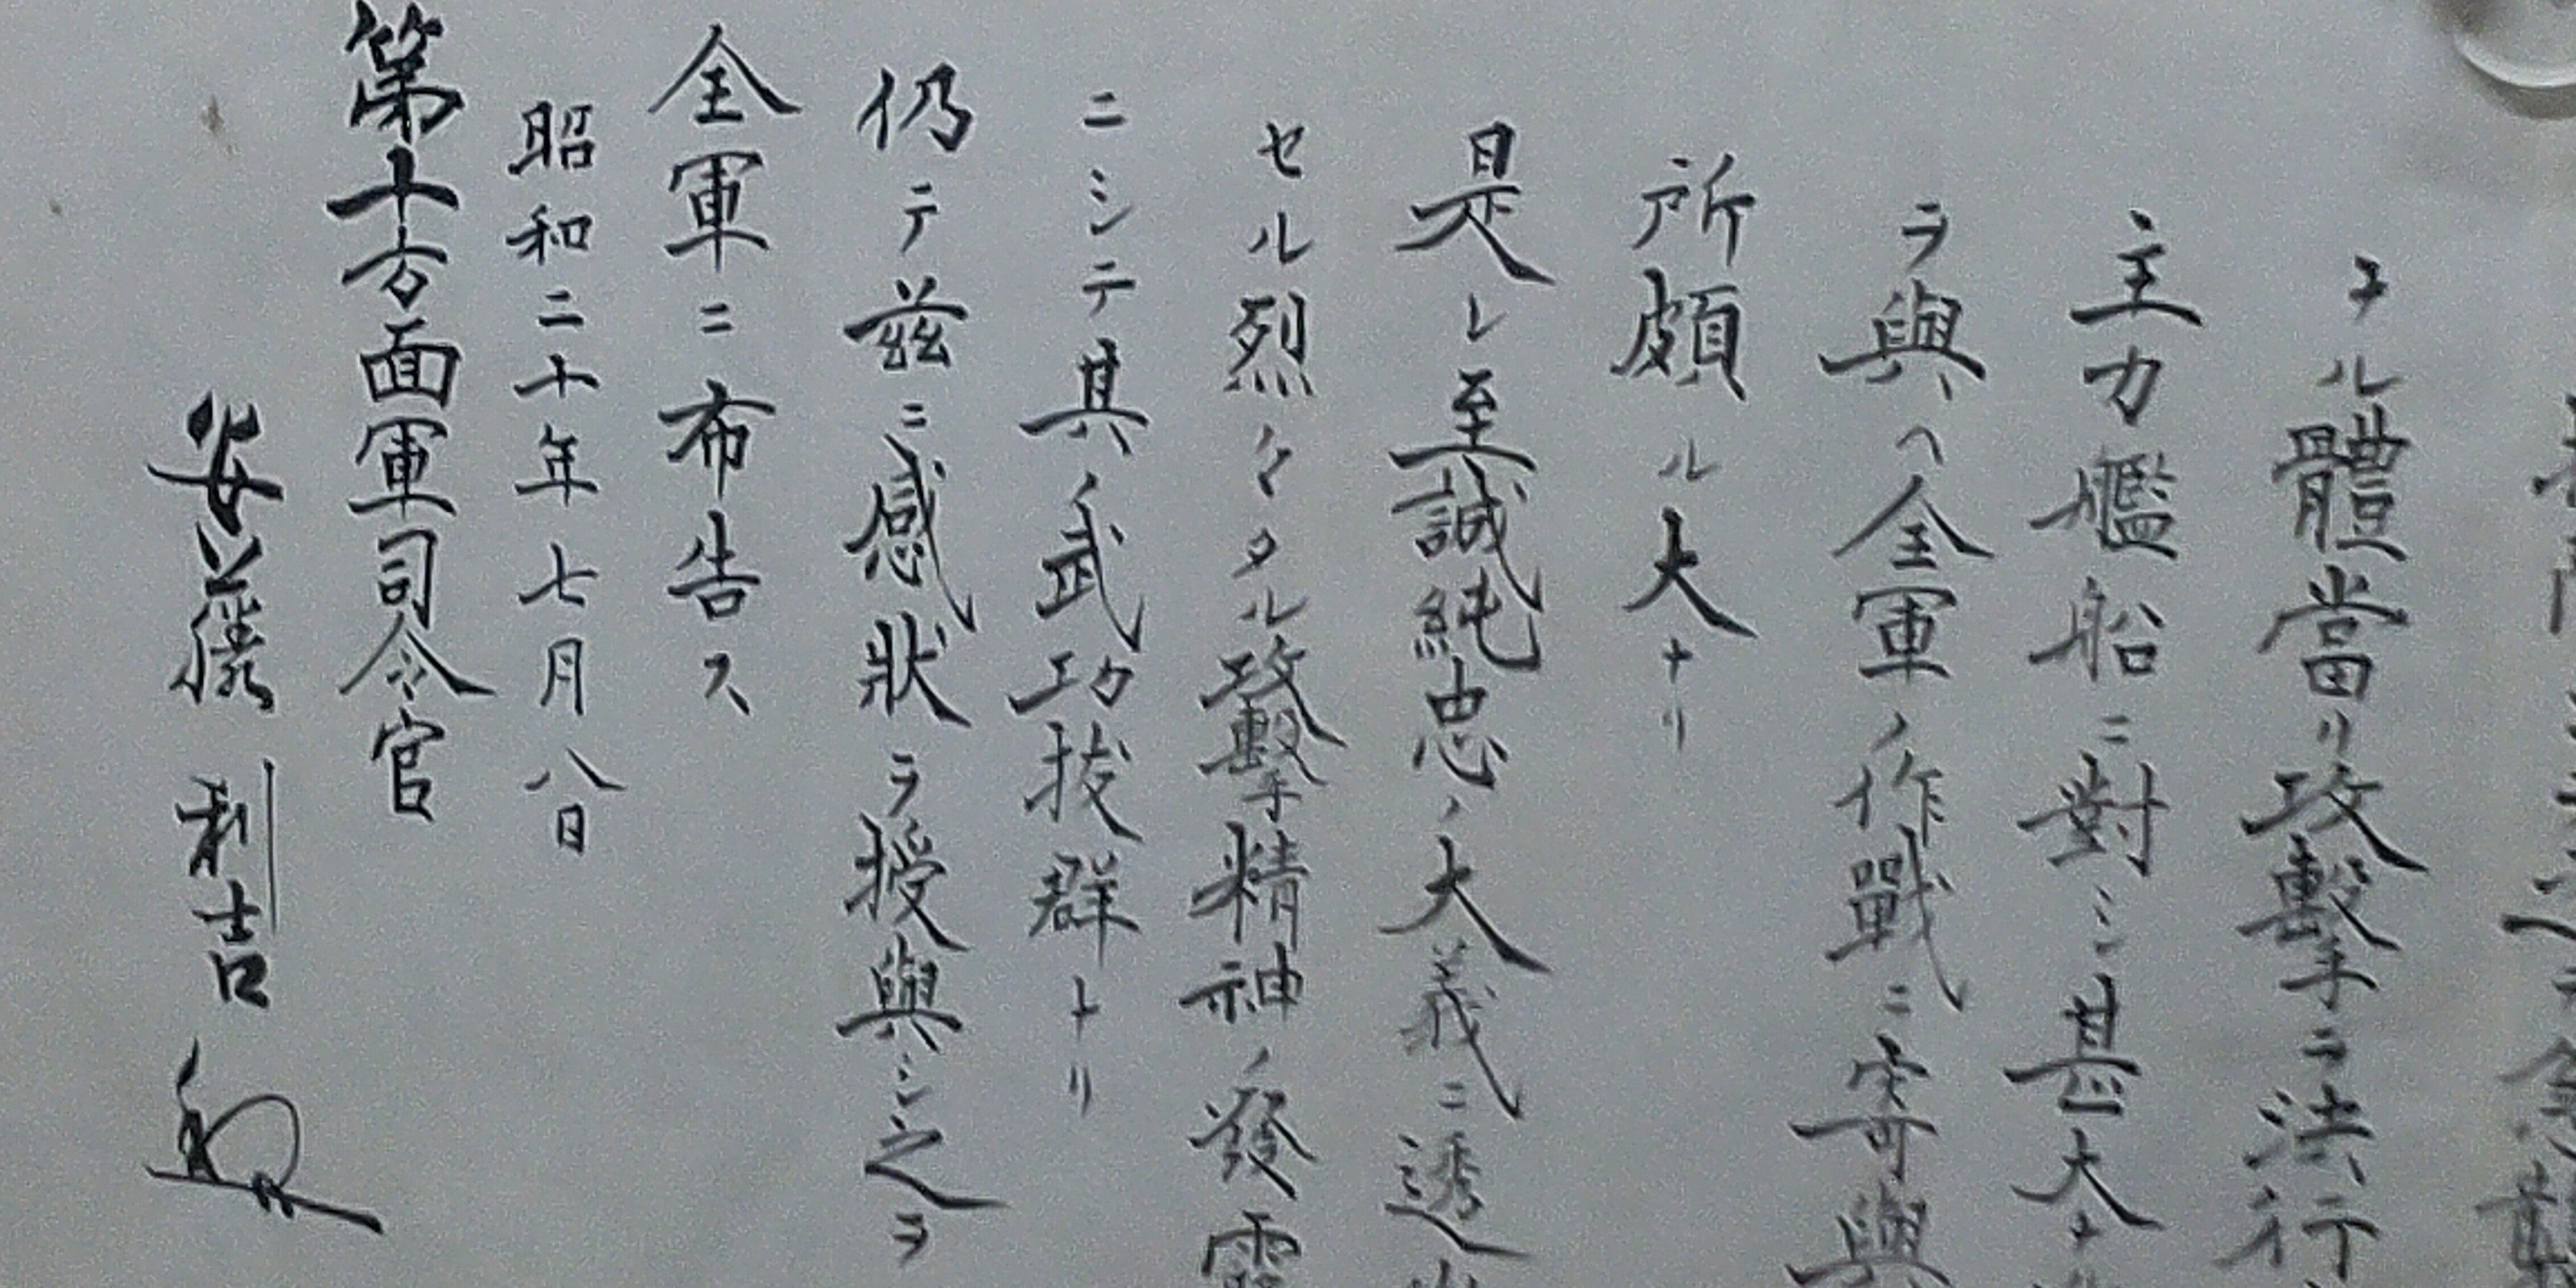 ナル體當リ攻擊ヲ決行
主力艦船ニ對シ甚大ナ
ヲ與ヘ全軍ノ作戰ニ寄與
所頗ル大ナリ
是レ至誠純忠ノ大義ニ透
セル烈々タル攻擊精神ノ發露
ニシテ其ノ武功拔群トリ
仍テ茲ニ感狀ヲ授與シ之ヲ
全軍ニ布告ス
昭和二十年七月八日
第十方面軍司令官
安藤利吉